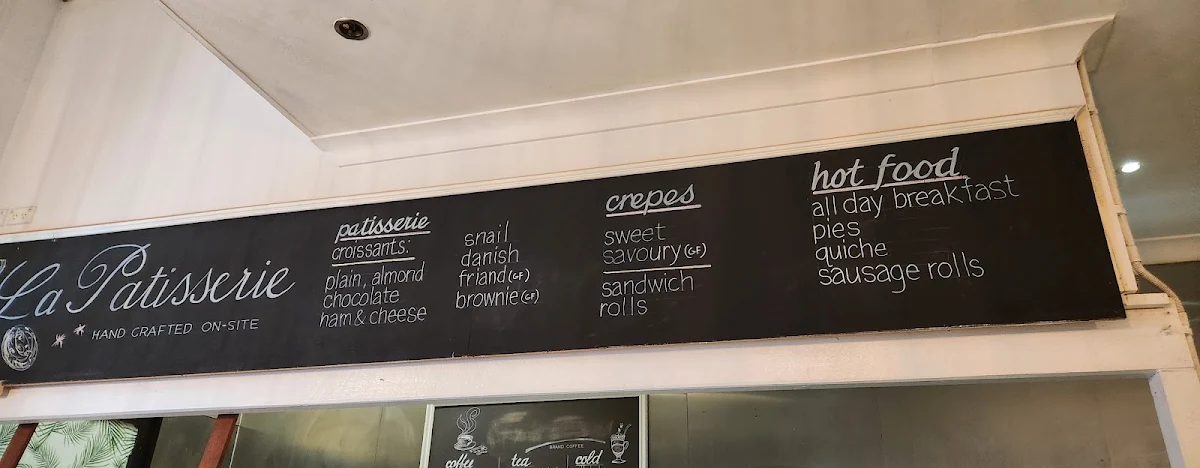 La Patisserie
HAND CRAFTED ON-SITE
patisserie
croissants:
plain, almond
chocolate
ham & cheese
snail
danish
friand (GF)
brownie (GF)
crepes
sweet
savoury (GF)
sandwich
rolls
hot food
all day breakfast
pies
quiche
sausage rolls
BRAND COFFEE
coffee
tea
cold